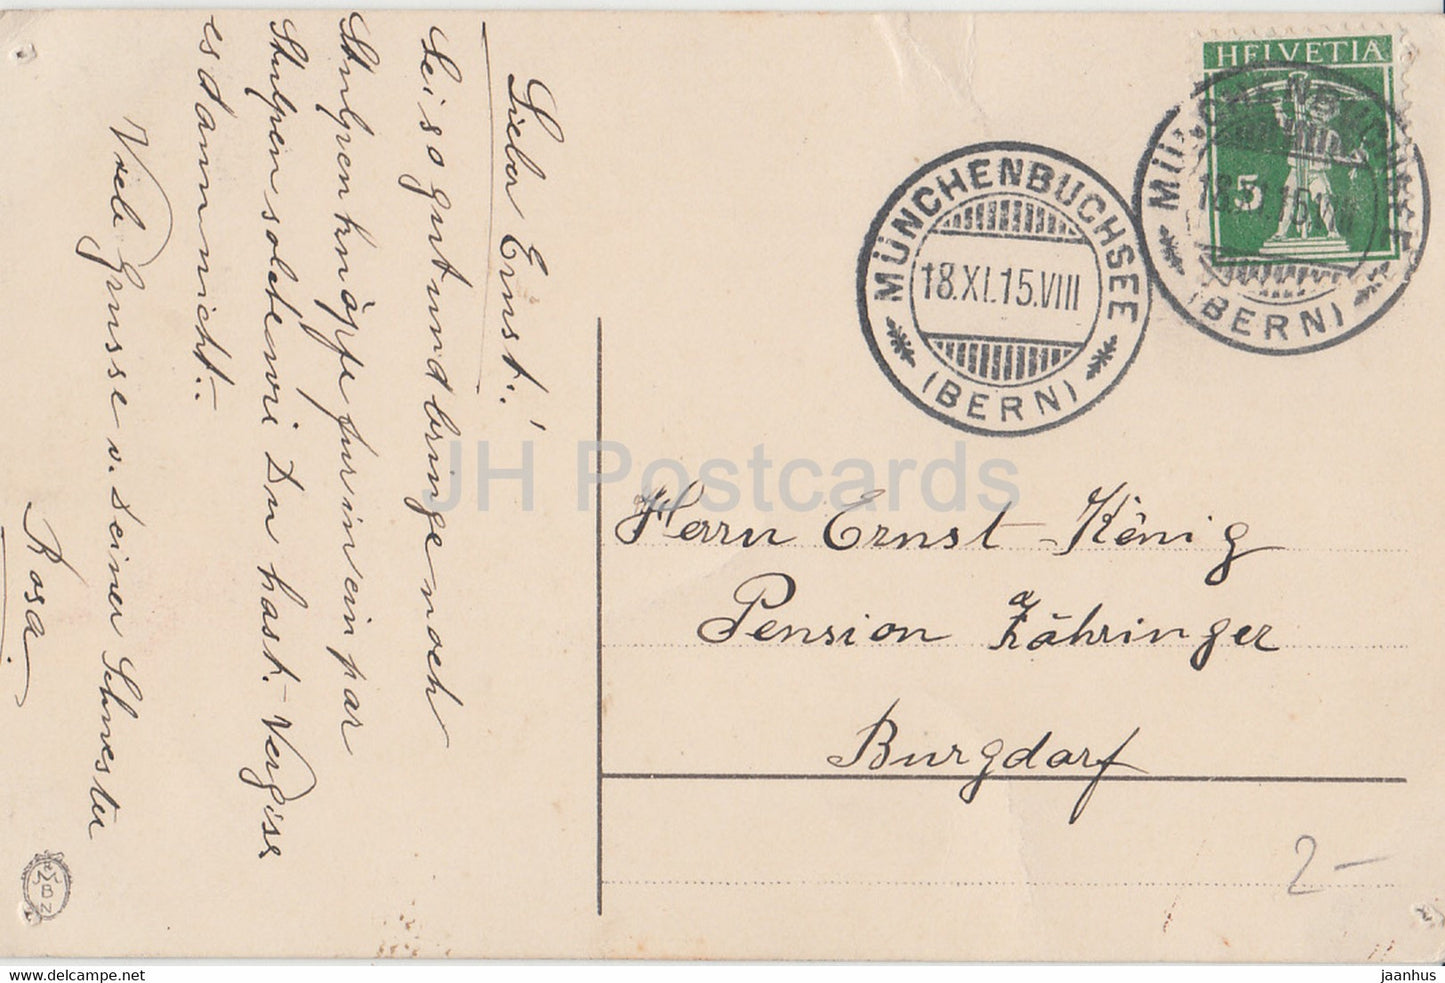 Lieber Ernst!
Sei so gut und bringe noch
Stulpenknöpfe für in ein par
Stulpen solche wie Du hast. Vergiss
es dann nicht.
Viele Grüsse v. Deiner Schwester
Rosa.
HELVETIA
5
MÜNCHENBUCHSEE
18.XI.15.VIII
(BERN)
MÜNCHENBUCHSEE
18.XI.15.VIII
(BERN)
Herrn Ernst König
Pension Zähringer
Burgdorf
2-
MBN
JH Postcards
www.delcampe.net
jaanhus